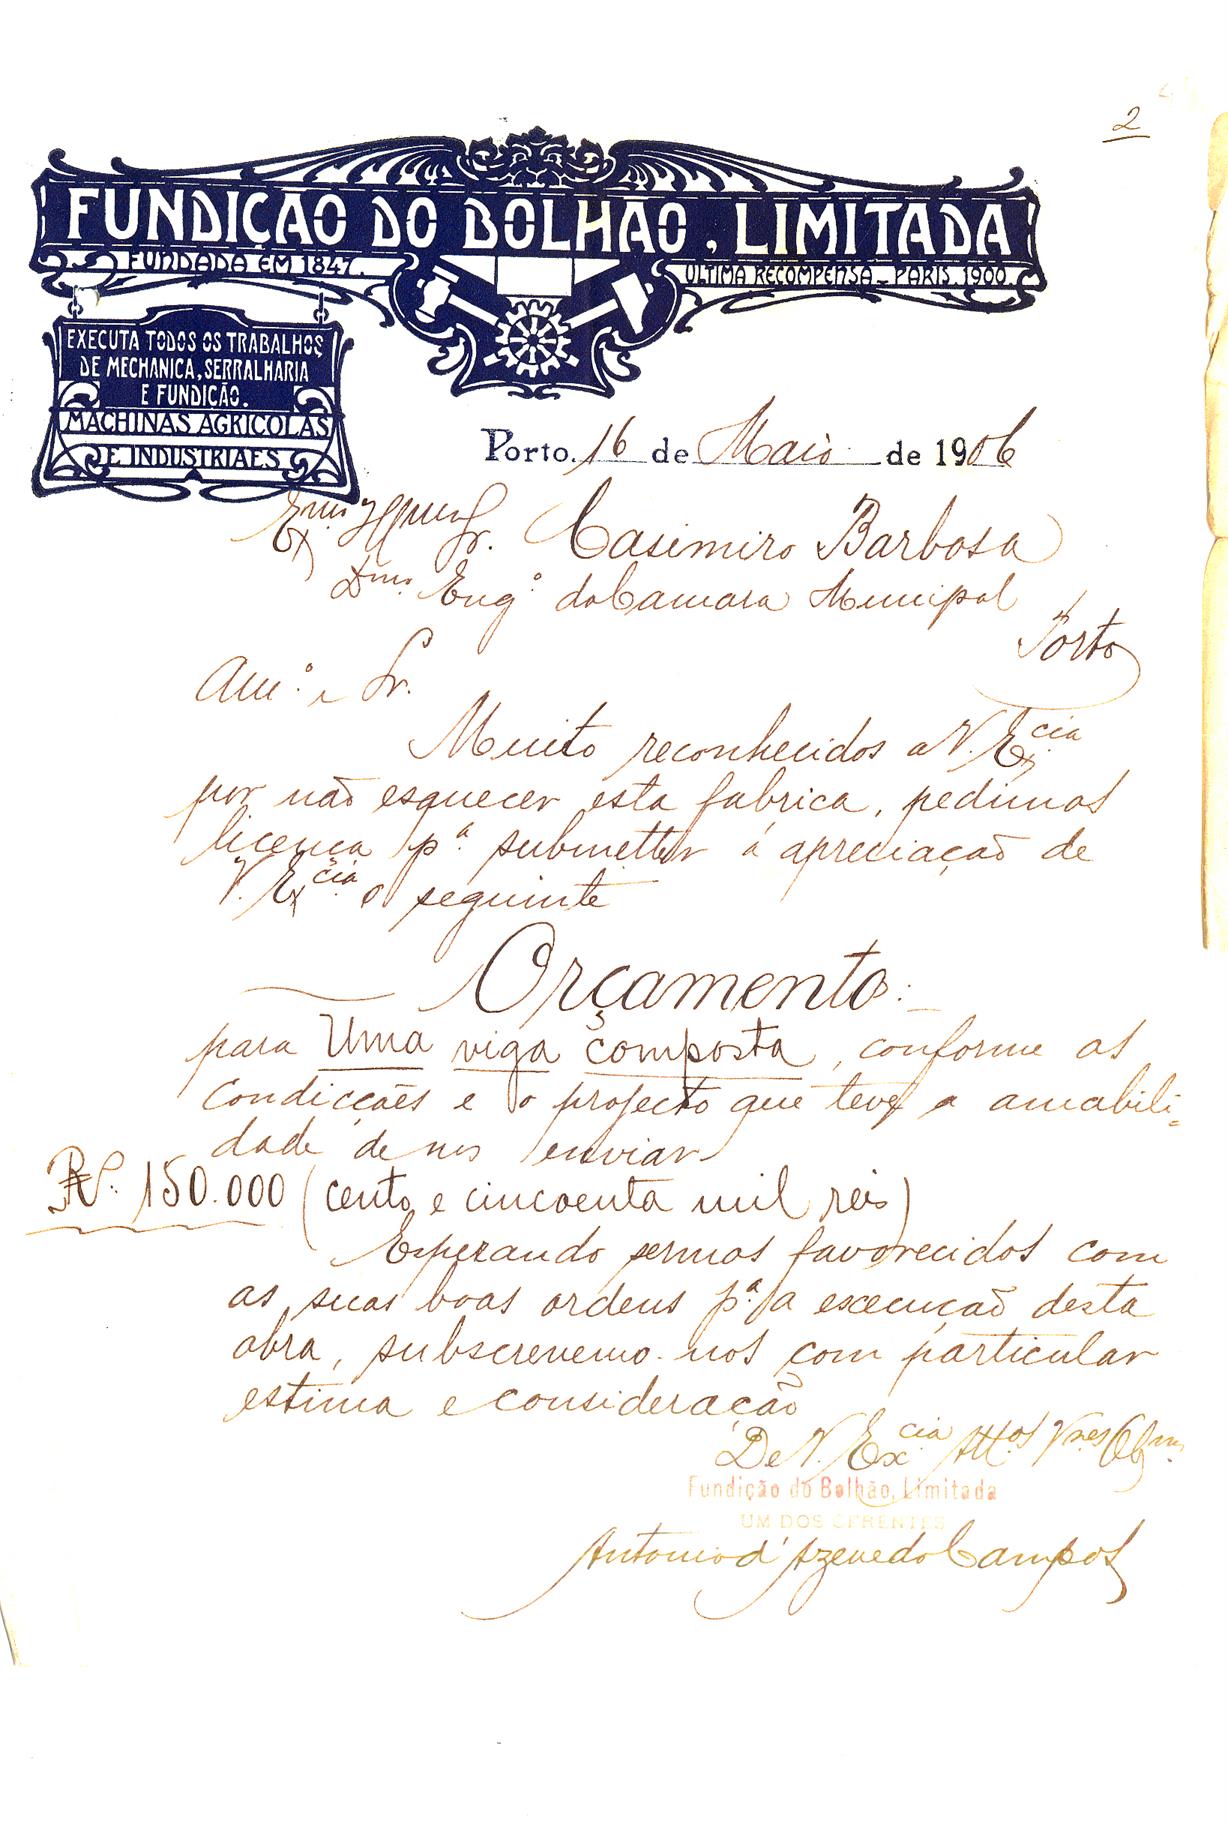 2
FUNDIÇÃO DO BOLHÃO, LIMITADA
FUNDADA EM 1847.
ULTIMA RECOMPENSA - PARIS. 1900.
EXECUTA TODOS OS TRABALHOS
DE MECHANICA, SERRALHARIA
E FUNDIÇÃO.
MACHINAS AGRICOLAS
E INDUSTRIAES
Porto. 16 de Maio de 1906
Exmo Sr. Casimiro Barbosa
Dmo Engº da Camara Municipal
Porto
Amº e Sr.
Muito reconhecidos a V. Excia
por não esquecer esta fabrica, pedimos
licença pª submetter á apreciação de
V. Excia o seguinte
Orçamento:
para Uma viga composta, conforme as
condicções e o projecto que teve a amabili-
dade de nos enviar
Rs. 150.000 (cento e cincoenta mil reis)
Esperando sermos favorecidos com
as suas boas ordens pª a execução desta
obra, subscrevemo-nos com particular
estima e consideração
De V. Excia Attos Vnes Obgmos
Fundição do Bolhão, Limitada
UM DOS GERENTES
Antonio d'Azevedo Campos